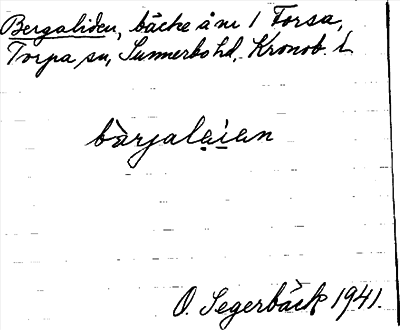 Bergaliden, backe å nr 1 Torsa,
Torpa sn, Sunnerbo hd, Kronob. l.
bàrjalạiạn
O. Segerbäck 1941.